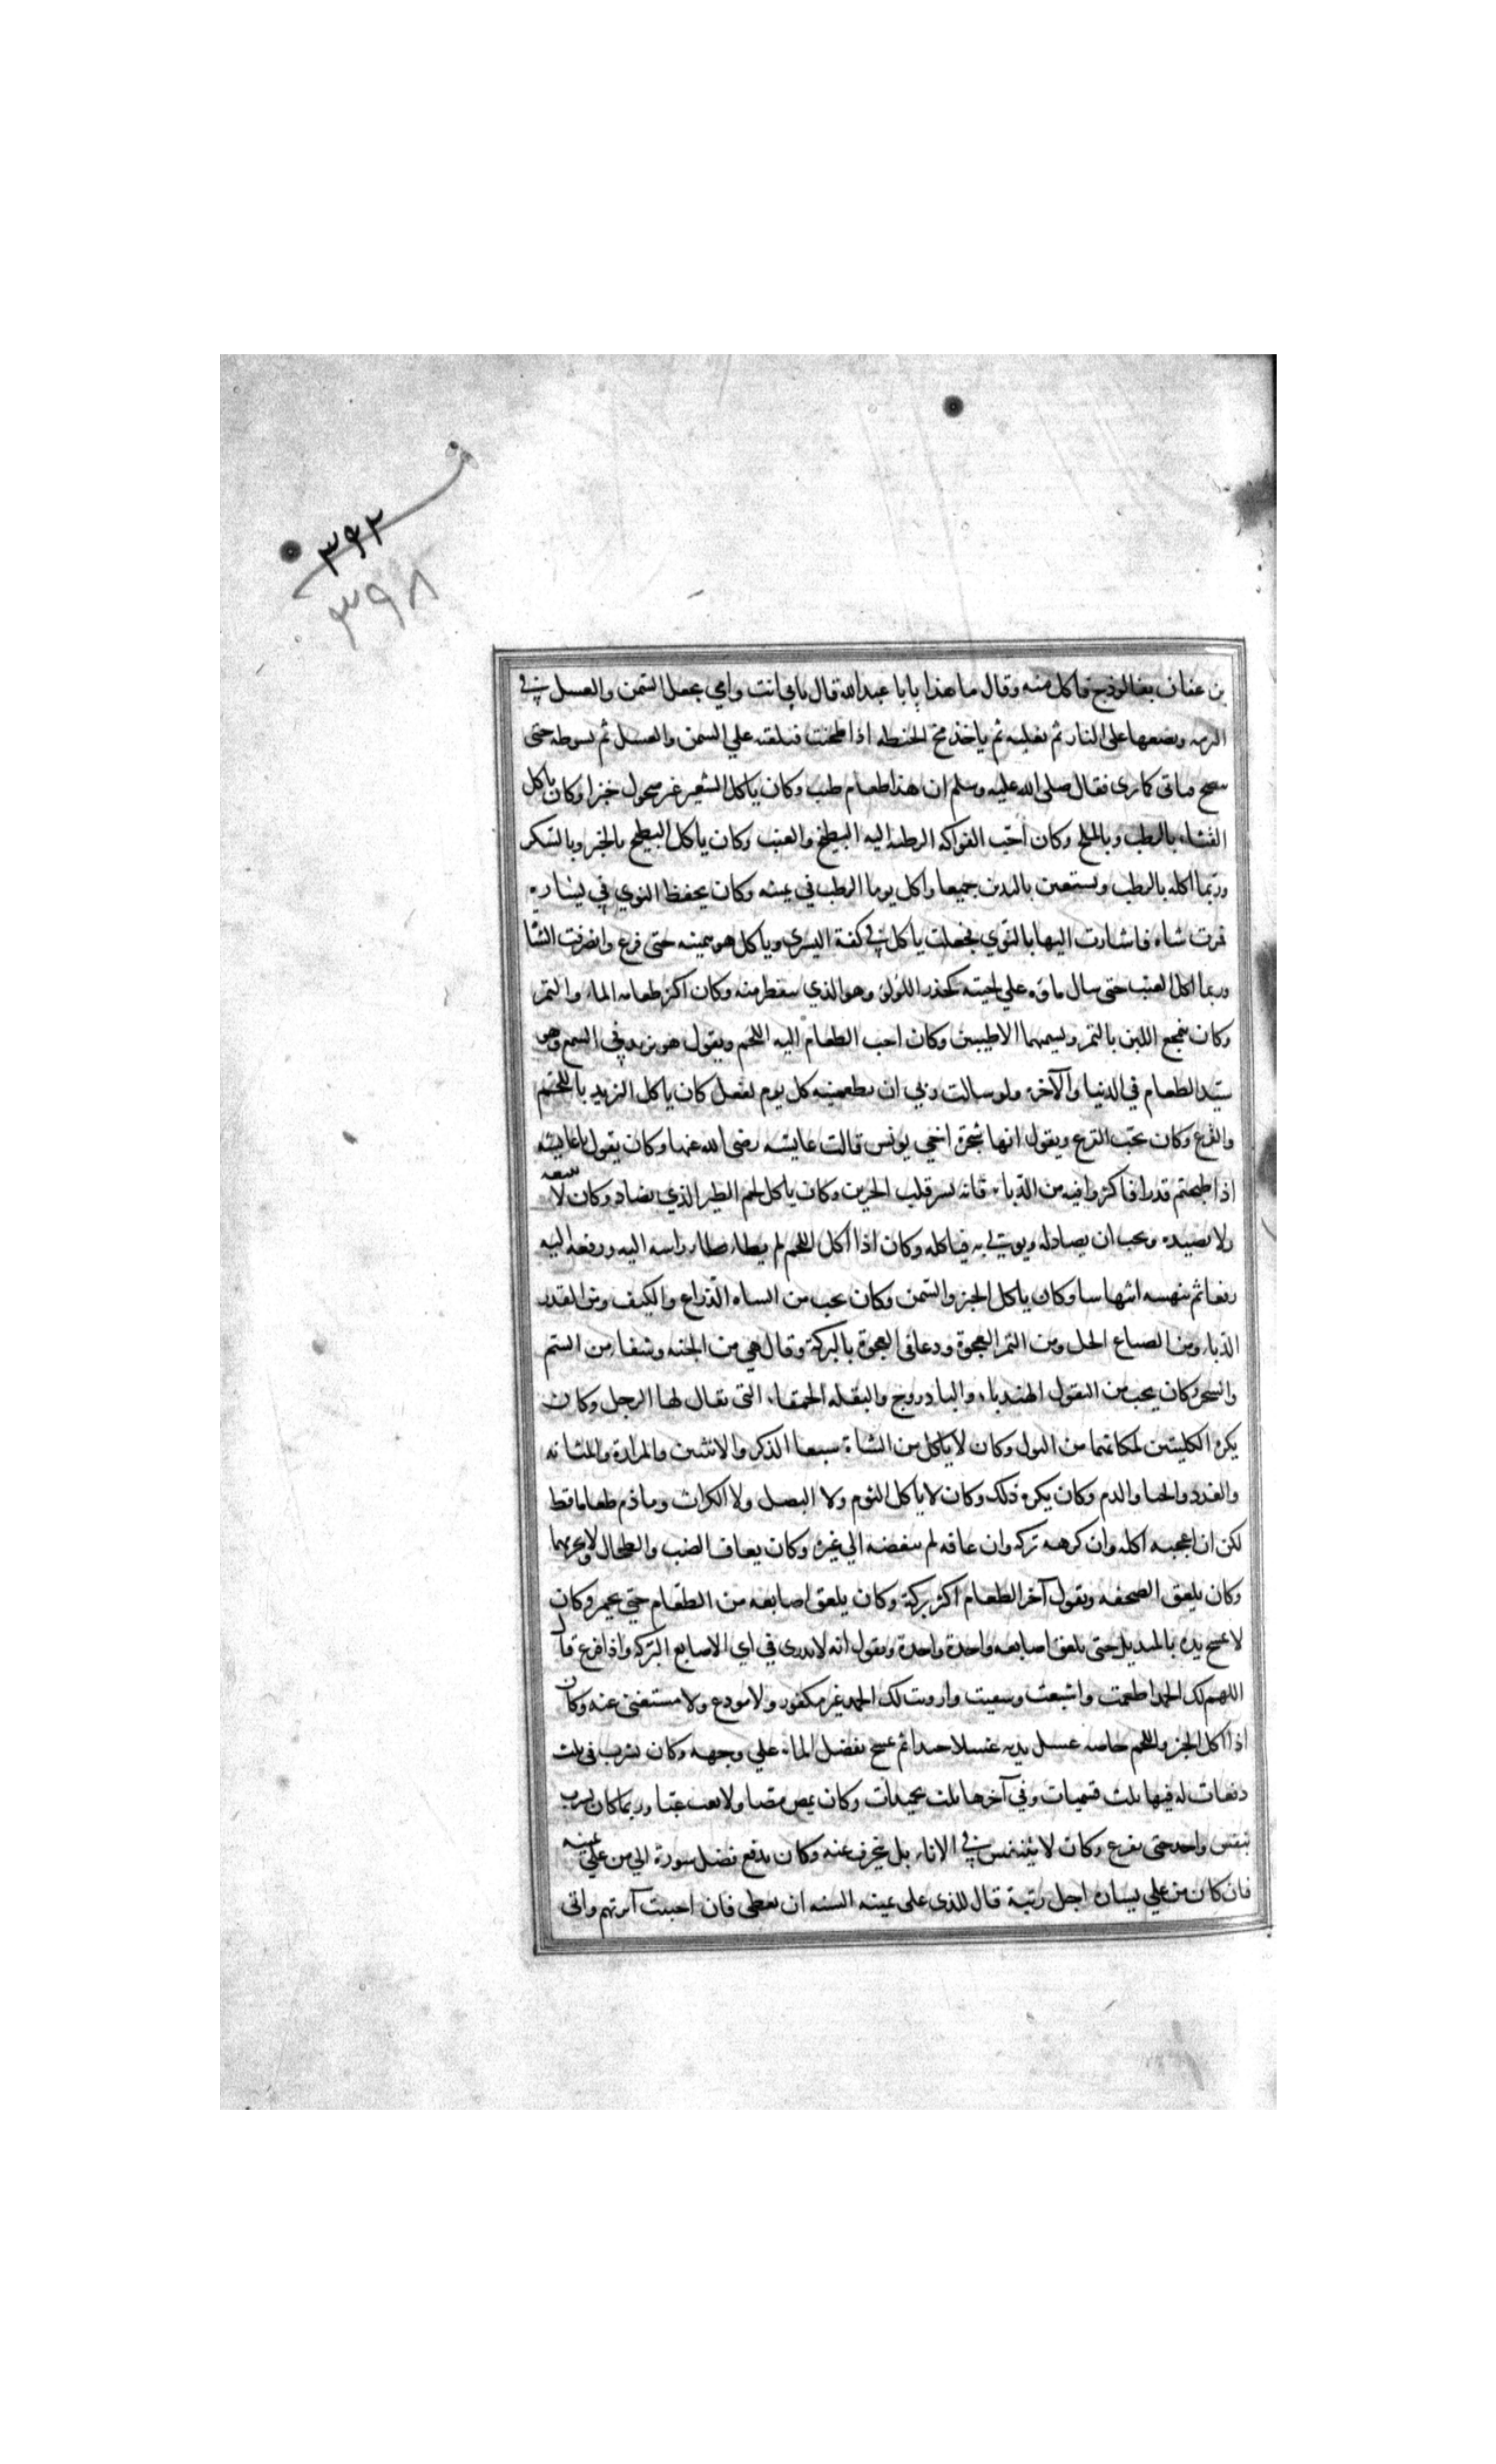 ٣٩٢
٣٩٨
بن عفان بفالوذج فاكل منه وقال ما هذا يابا عبدالله قال بابي انت وامي يجعل السمن والعسل في
البرمه ويضعها على النار ثم نغليه ثم ياخذ مخ الحنطه اذا طحنت فنلقيه علي السمن والعسل ثم نسوطه حتى
ينضج فياتى كما ترى فقال صلى الله عليه وسلم ان هذا طعام طيب وكان ياكل الشعير غير منخول خبزا وكان ياكل
القثاء بالرطب وبالملح وكان احب الفواكه الرطبه اليه البطيخ والعنب وكان ياكل البطيخ بالخبز وبالسكر
وربما اكله بالرطب ويستعين باليدين جميعا واكل يوما الرطب في يمينه وكان يحفظ النوي في يساره
فمرت شاه فاشارت اليها بالنوي فجعلت ياكل في كفه اليسري وياكل هو بيمينه حتى فرغ وانصرفت الشا
وربما اكل العنب حتى سال ماؤه علي لحيته كحدر اللؤلؤ وهو الذي سقط منه وكان اكثر طعامه الماء والتمر
وكان يتمجع اللبن بالتمر ويسميهما الاطيبين وكان احب الطعام اليه اللحم ويقول هو يزيد في السمع وهو
سيد الطعام في الدنيا والآخرة ولو سالت ربي ان يطعمنيه كل يوم لفعل كان ياكل الثريد باللحم
والقرع وكان يحب القرع ويقول انها شجرة اخي يونس قالت عايشه رضى الله عنها وكان يقول يا عايشه
اذا طبختم قدرا فاكثروا فيه من الدباء فانه يسر قلب الحزين وكان ياكل لحم الطير الذي يصاد وكان لا يتبعه
ولا يصيده ويحب ان يصاد له ويوتي به فياكله وكان اذا اكل اللحم لم يطاء طا راسه اليه ورفعه اليه
رفعا ثم ينهسه انتهاسا وكان ياكل الخبز والسمن وكان يحب من الساه الذراع والكتف ومن القدر
الدباء ومن الصباغ الخل ومن التمر العجوة ودعا في العجوة بالبركة وقال هي من الجنه وشفاء من السم
والسحر وكان يحب من البقول الهندباء والباذروج والبقله الحمقاء التى يقال لها الرجل وكان
يكره الكليتين لمكانهما من البول وكان لا ياكل من الشاة سبعا الذكر والانثيين والمرارة والمثانه
والغدد والحيا والدم وكان يكره ذلك وكان لا ياكل الثوم ولا البصل ولا الكراث وما ذم طعاما قط
لكن ان اعجبه اكله وان كرهه تركه وان عافه لم يبغضه الي غيره وكان يعاف الضب والطحال ولا يحرمهما
وكان يلعق الصحفه ويقول آخر الطعام اكثر بركة وكان يلعق اصابعه من الطعام حتي يحمر وكان
لا يمسح يده بالمنديل حتى يلعق اصابعه واحدة واحدة ويقول انه لا يدري في اي الاصابع البركه واذا فرغ قال
اللهم لك الحمد اطعمت واشبعت وسقيت واروت لك الحمد غير مكفور ولا مودع ولا مستغنى عنه وكان
اذا اكل الخبز واللحم خاصه غسل يديه غسلا جيدا ثم يمسح بفضل الماء علي وجهه وكان يشرب فى ثلث
دفعات له فيها ثلث تسميات وفي آخرها ثلث تحميدات وكان يمص مصا ولا يعب عبا وربما كان يشرب
بنفس واحد حتى يفرغ وكان لا يتنفس في الاناء بل ينحرف عنه وكان يدفع فضل سورة الي من علي يمينه
فان كان من علي يساره اجل رتبة قال للذى على يمينه السنه ان تعطى فان احببت آثرتهم واتى